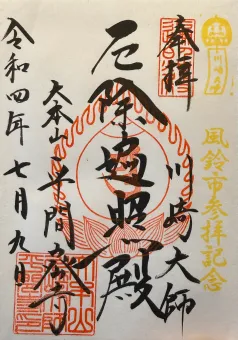 奉拝
川崎大師
風鈴市参拝記念
厄除遍照殿
大本山 平間寺
令和四年 七月九日